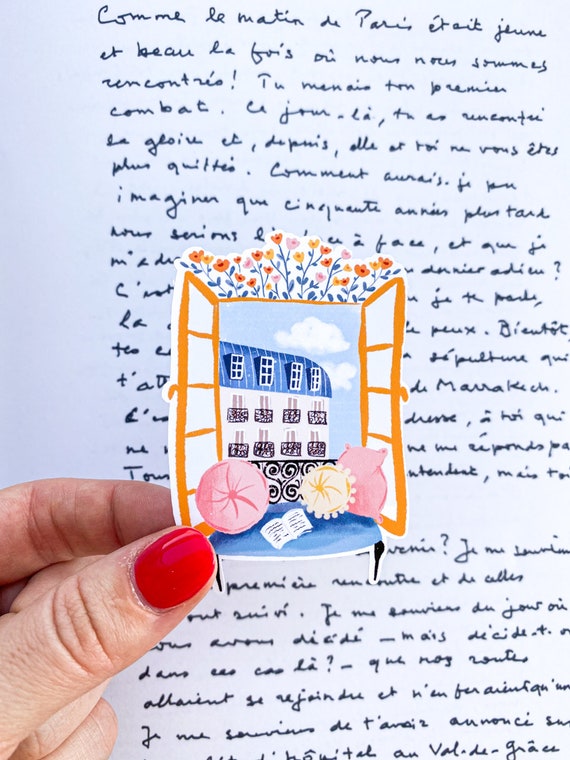 Comme le matin de Paris était jeune
et beau la fois où nous nous sommes
rencontrés! Tu menais ton premier
combat. Ce jour-là, tu as rencontré
la gloire et, depuis, elle et toi ne vous êtes
plus quittés. Comment aurais-je pu
imaginer que cinquante années plus tard
nous serions là à face, et que je
m'ad dernier adieu?
C'est je te parle,
la peux. Bientôt,
tes sépulture qui
t'att de Marrakech.
C'es dresse, à toi qui
ne ne me réponds pas
Tous entendent, mais toi
venir? Je me souviens
première rencontre et de celles
ont suivi. Je me souviens du jour où
nous avons décidé - mais décide-t-on
dans ces cas là? - que nos routes
allaient se rejoindre et n'en feraient qu'un
Je me souviens de t'avoir annoncé sur
d'hôpital au Val-de-Grâce